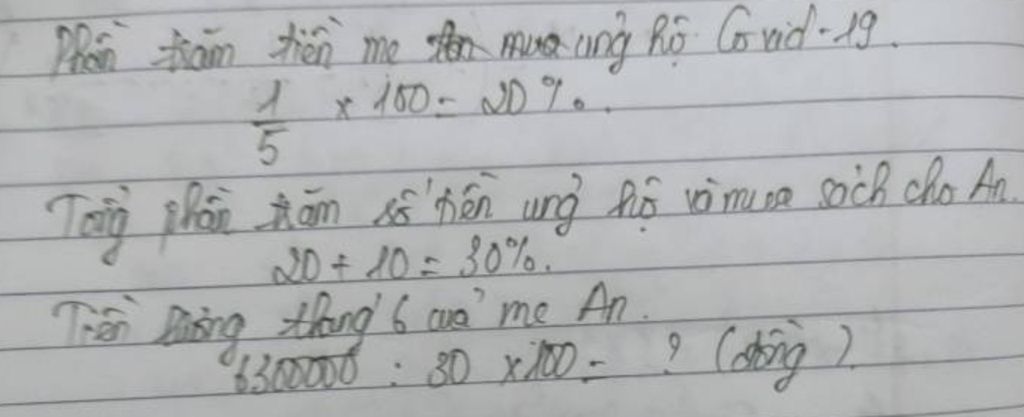 Phần trăm tiền mẹ mua ủng hộ Covid-19.
1/5 × 100 = 20%.
Tổng phần trăm số tiền ủng hộ và mua sách cho An.
20 + 10 = 30%.
Tiền lương tháng 6 của mẹ An.
6300000 : 30 × 100 = ? (đồng)